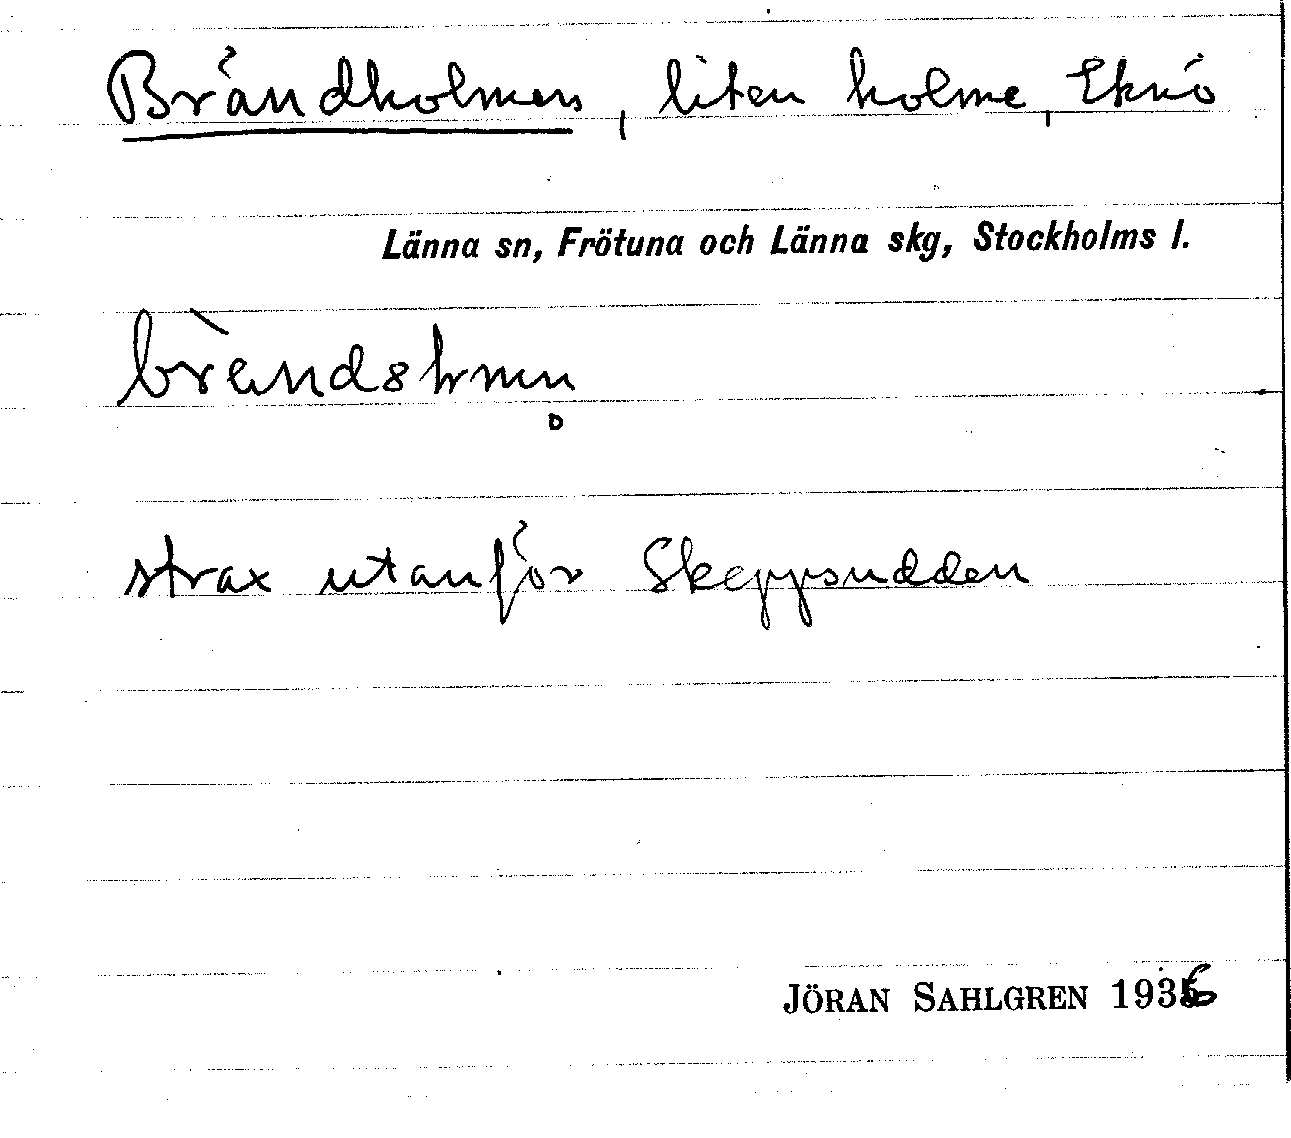 Brändholmen, liten holme, Eknö
Länna sn, Frötuna och Länna skg, Stockholms l.
strax utanför Skeppsudden
JÖRAN SAHLGREN 1936